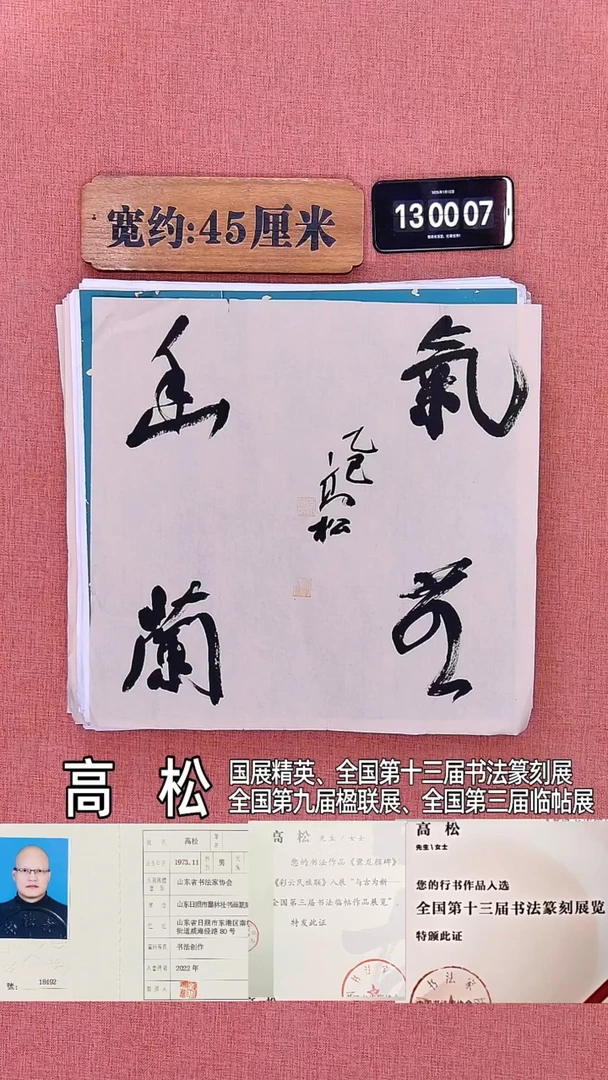 宽约:45厘米
13 00 07
氣若
幽蘭
乙巳
高松
高 松
国展精英、全国第十三届书法篆刻展
全国第九届楹联展、全国第三届临帖展
高松
1973.11
男
山东省书法家协会
街道威海径路 80 号
书法创作
2022 年
號:
高 松 先生\女士
您的书法作品《爨龙颜碑》
《彩云民族联》入展“与古为新
全国第三届书法临帖作品展览”
特发此证
高 松
先生\女士
您的行书作品入选
全国第十三届书法篆刻展览
特颁此证